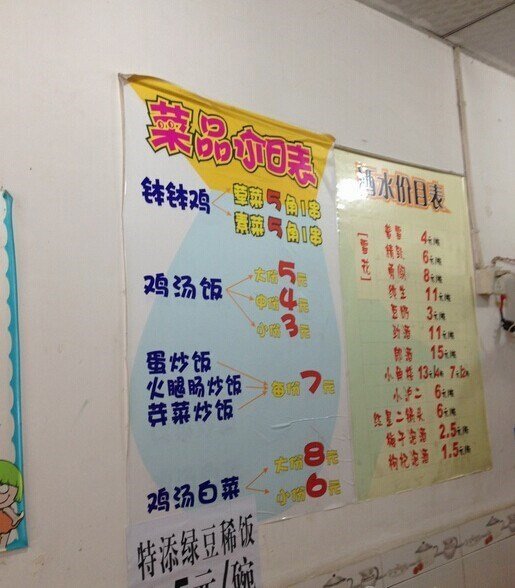 菜品价目表
钵钵鸡
荤菜5角1串
素菜5角1串
鸡汤饭
大份5元
中份4元
小份3元
蛋炒饭
火腿肠炒饭
芽菜炒饭
每份7元
鸡汤白菜
大份8元
小份6元
特添绿豆稀饭
元/碗
酒水价目表
[雪花]
4元/瓶
精制 6元/瓶
勇闯 8元/瓶
纯生 11元/瓶
豆奶 3元/瓶
劲酒 11元/瓶
郎酒 15元/瓶
小角楼 13元/瓶 7元/2两
小泸二 6元/瓶
红星二锅头 6元/瓶
梅子泡酒 2.5元/瓶
枸杞泡酒 1.5元/瓶